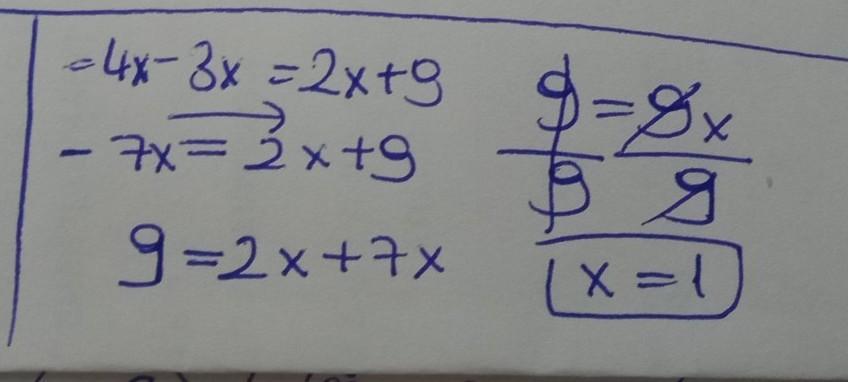 -4x-3x=2x+9
-7x=2x+9
9=2x+7x
9=9x
9 9
x=1